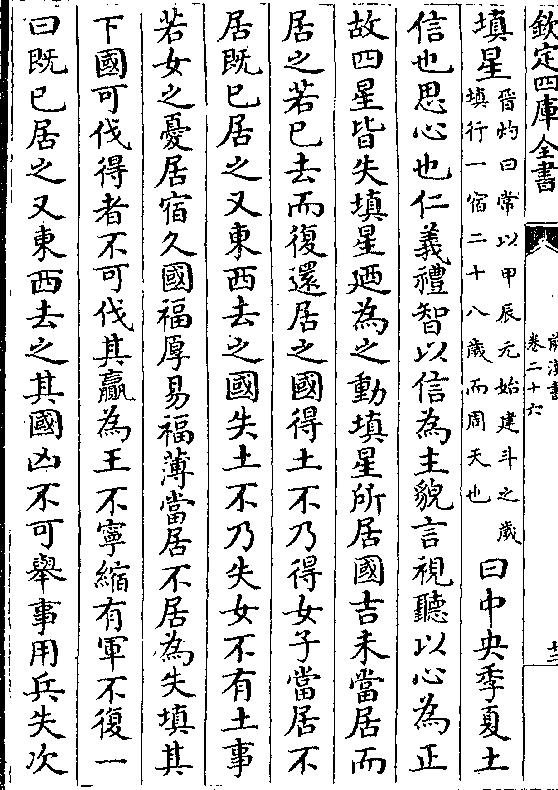 欽定四庫全書
前漢書
卷二十六
填星晉灼曰常以甲辰元始建斗之歲填行一宿二十八歲而周天也曰中央季夏土
信也思心也仁義禮智以信為主貌言視聽以心為正
故四星皆失填星廼為之動填星所居國吉未當居而
居之若已去而復還居之國得土不乃得女子當居不
居既已居之又東西去之國失土不乃失女不有土事
若女之憂居宿久國福厚易福薄當居不居為失填其
下國可伐得者不可伐其贏為王不寧縮有軍不復一
曰既已居之又東西去之其國凶不可舉事用兵失次